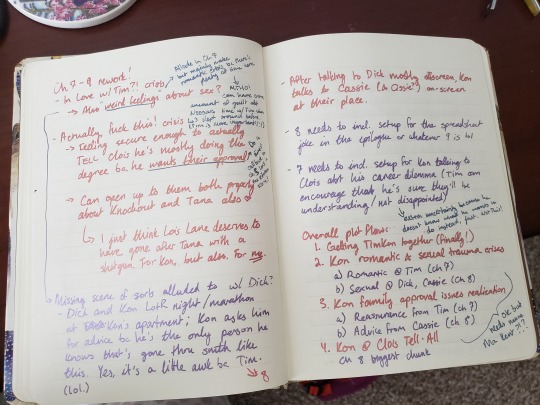 Ch 7-8 rework!
- In Love w/ Tim?! crisis
→ Also "weird feelings" about sex?
- Actually fuck this! crisis
→ Feeling secure enough to actually
TELL Clois he's mostly doing the
degree bc he wants their approval!
→ Can open up to them both properly
about Knockout and Tana also
↳ I just think Lois Lane deserves to
have gone after Tana with a
shotgun. For Kon, but also. For me.
Missing scene of sorts alluded to w/ Dick?
- Dick and Kon LotR night/marathon
at Kon's apartment; Kon asks him
for advice bc he's the only person he
knows that's gone thru smth like
this. Yes, it's a little awk bc Tim.
(lol.) ↳ 8
- After talking to Dick mostly offscreen, Kon
talks to Cassie (& Cissie?) on-screen
at their place.
- 8 needs to incl. setup for the spreadsheet
joke in the epilogue or whatever 9 is lol
- 7 needs to incl. setup for Kon talking to
Clois abt his career dilemma (Tim can
encourage that he's sure they'll be
understanding / not disappointed)
↳ extra uncertainty because he
doesn't know what he wants
to do instead, just. Not This!
Overall plot Plans:
1. Getting TimKon together (Finally!)
2. Kon romantic & sexual trauma crises
a) Romantic @ Tim (ch 7)
b) Sexual @ Dick, Cassie (ch 8)
3. Kon family approval issues realization
a) Reassurance from Tim (ch 7)
b) Advice from Cassie (ch 8)
4. Kon @ Clois Tell-All
Ch 8 biggest chunk